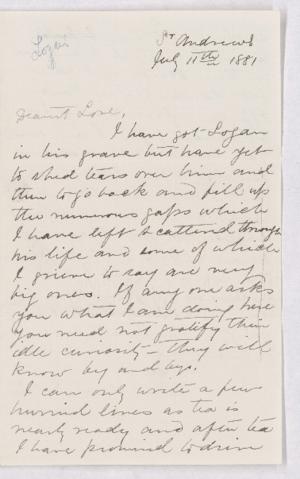 Logan
St Andrews
July 11th 1881.
Dearest Love,
I have got Logan
in his grave but have yet
to shed tears over him and
then to go back and fill up
the numerous gaps which
I have left scattered through
his life and some of which
I grieve to say are very
big ones. If any one asks
you what I am doing here
you need not gratify their
idle curiosity – they will
know by and bye.
I can only write a few
hurried lines as tea is
nearly ready and after tea
I have promised to drive